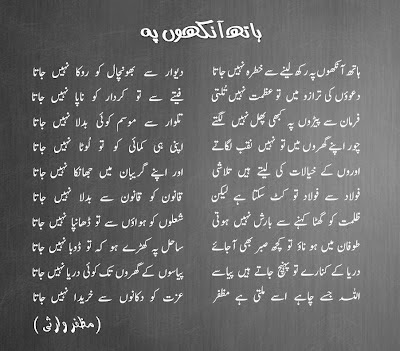 ہاتھ آنکھوں پہ
ہاتھ آنکھوں پہ رکھ لینے سے خطرہ نہیں جاتا دیوار سے بھونچال کو روکا نہیں جاتا
دعوؤں کی ترازو میں تو عظمت نہیں تُلتی فیتے سے تو کردار کو ناپا نہیں جاتا
فرمان سے پیڑوں پہ کبھی پھل نہیں لگتے تلوار سے موسم کوئی بدلا نہیں جاتا
چور اپنے گھروں میں تو نہیں نقب لگاتے اپنی ہی کمائی کو تو لُوٹا نہیں جاتا
اوروں کے خیالات کی لیتے ہیں تلاشی اور اپنے گریبان میں جھانکا نہیں جاتا
فولاد سے فولاد تو کٹ سکتا ہے لیکن قانون کو قانون سے بدلا نہیں جاتا
ظلمت کو گھٹا کہنے سے بارش نہیں ہوتی شعلوں کو ہواؤں سے تو ڈھانپا نہیں جاتا
طوفان میں ہو ناؤ تو کچھ صبر بھی آجائے ساحل پہ کھڑے ہو کہ تو ڈوبا نہیں جاتا
دریا کے کنارے تو پہنچ جاتے ہیں پیاسے پیاسوں کے گھروں تک کوئی دریا نہیں جاتا
اللہ جسے چاہے اسے ملتی ہے مظفر عزت کو دکانوں سے خریدا نہیں جاتا
( مظفر وارثی )